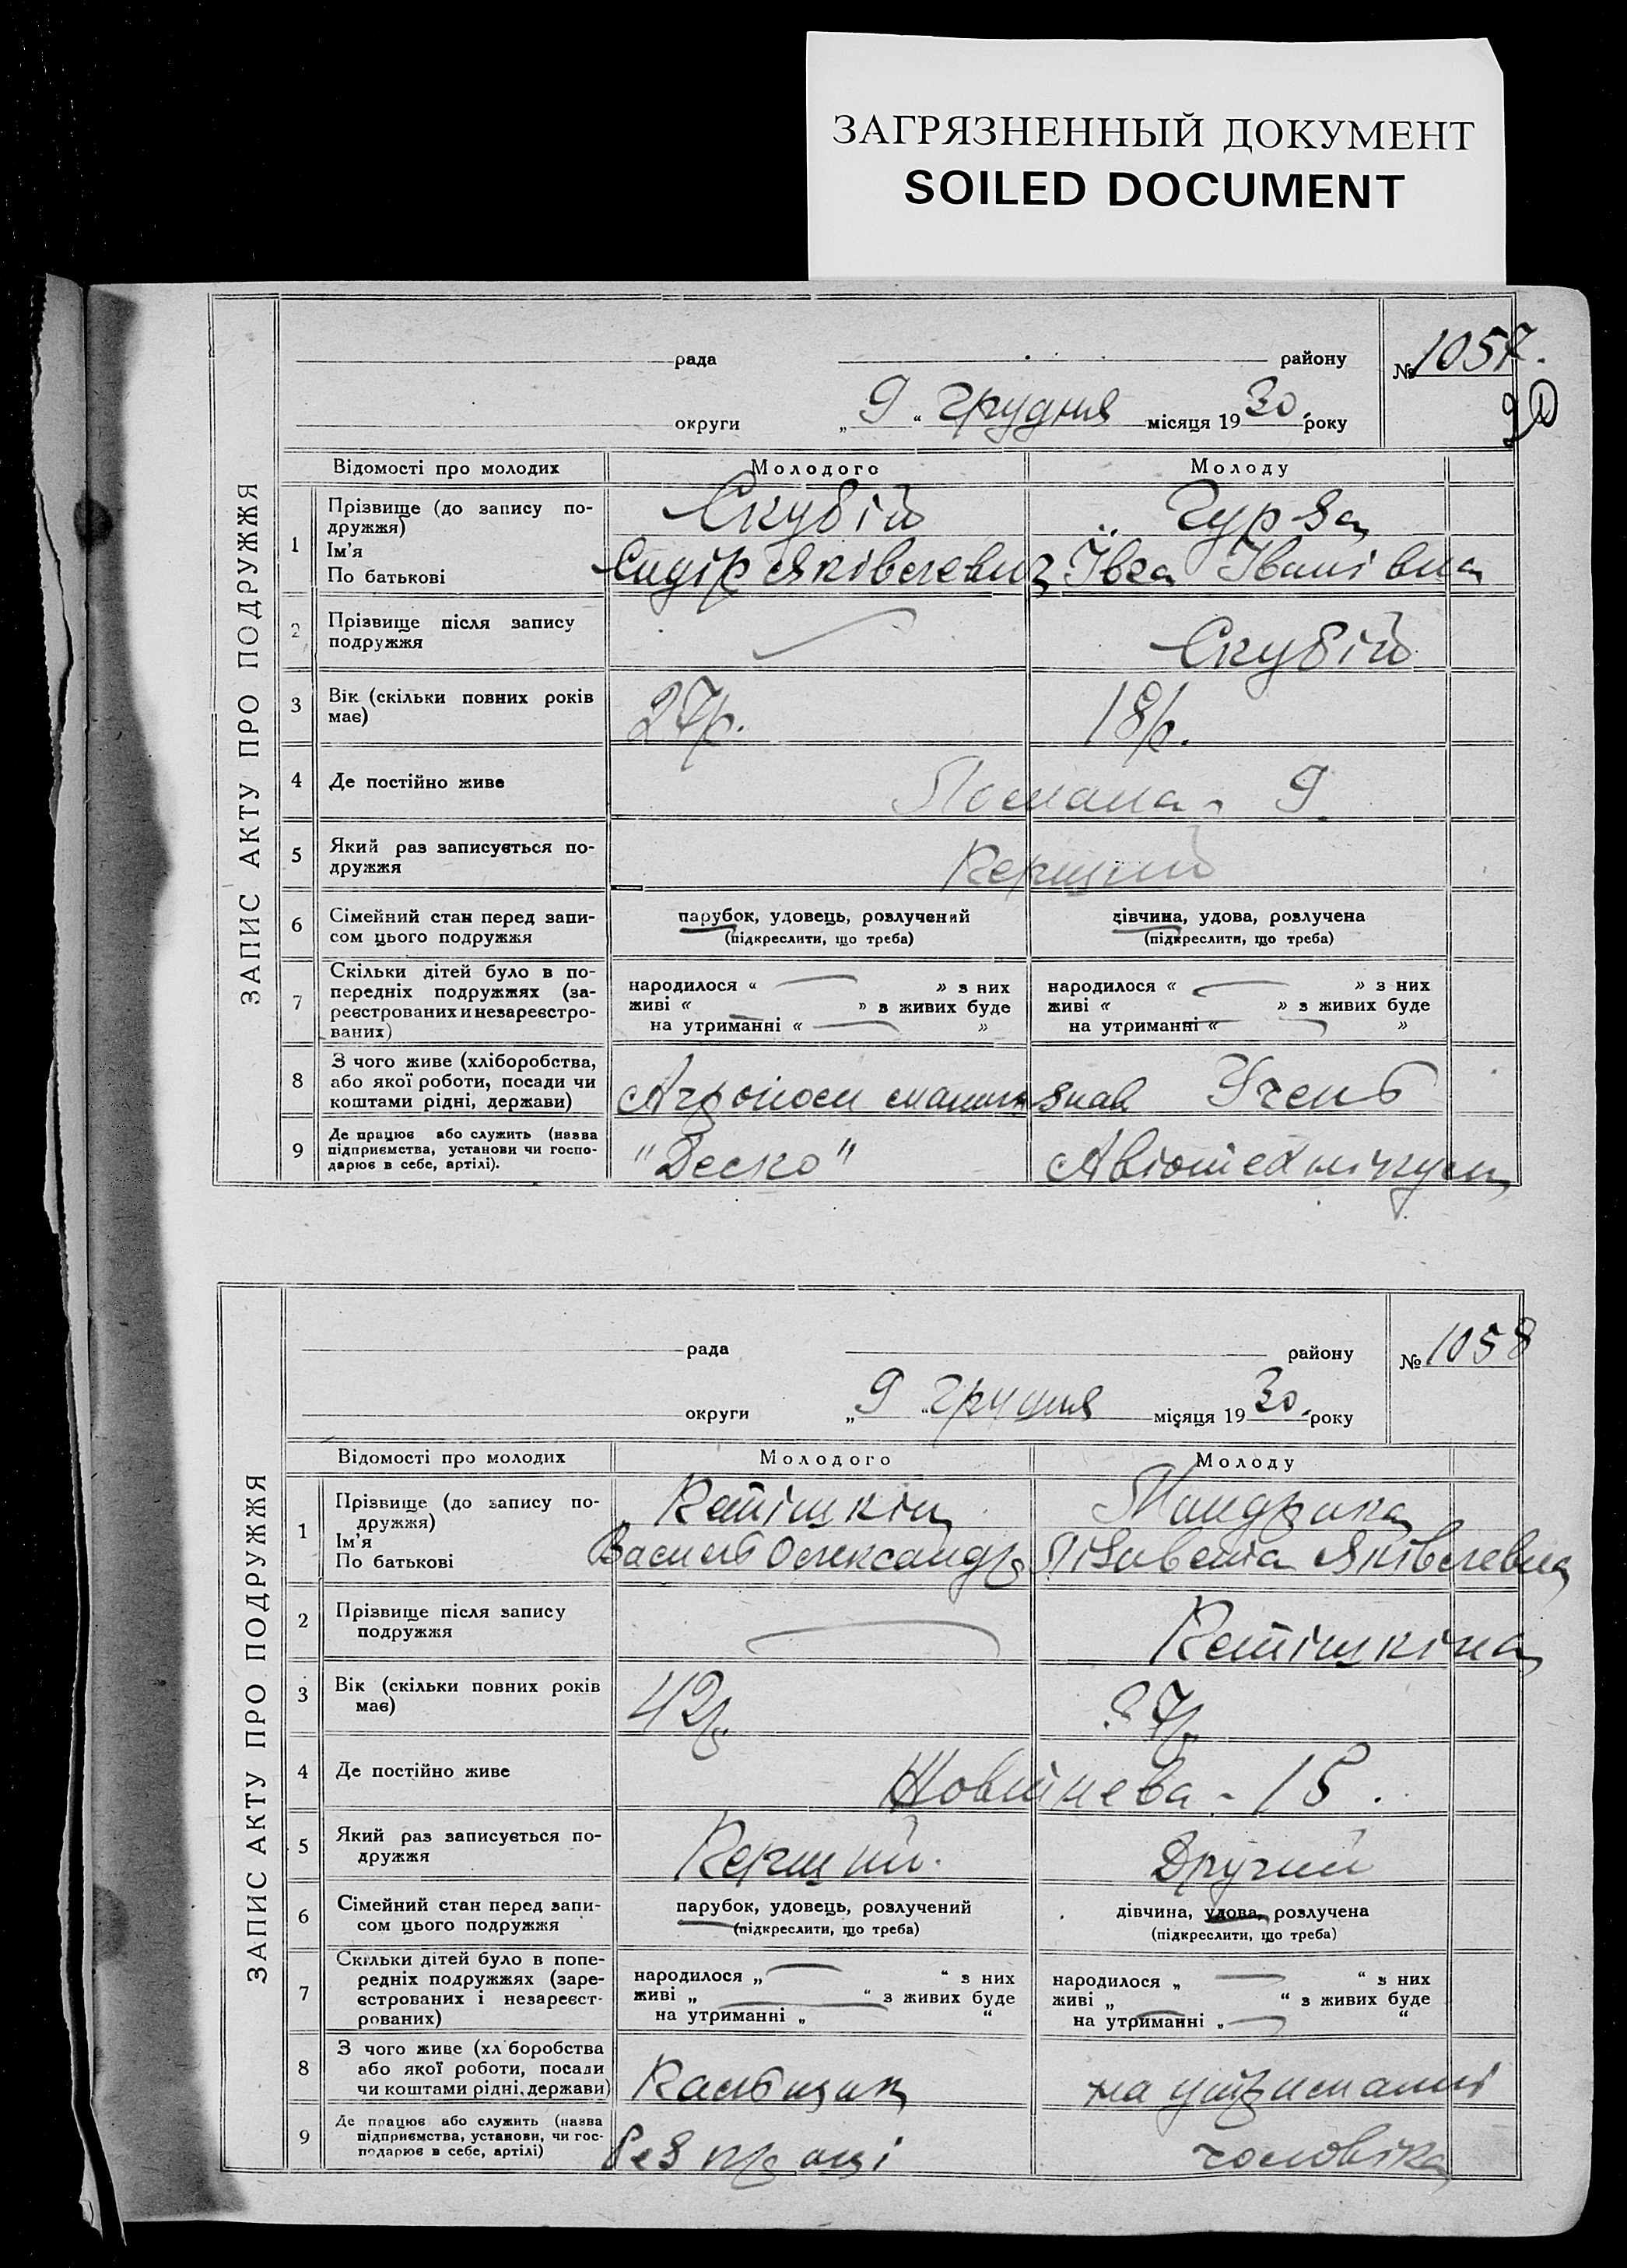 ЗАГРЯЗНЕННЫЙ ДОКУМЕНТ
SOILED DOCUMENT
ЗАПИС АКТУ ПРО ПОДРУЖЖЯ
рада району № 1057.
округи „ 9 “ Грудня місяця 1930. року
Відомості про молодих Молодого Молоду
1 Прізвище (до запису по-
дружжя)
Ім'я
По батькові
Скубій
Сидір Яківлевич
Гурза
Івга Іванівна
2 Прізвище після запису
подружжя
Скубій
3 Вік (скільки повних років
має)
27р. 18р.
4 Де постійно живе
9
5 Який раз записується по-
дружжя
Перший
6 Сімейний стан перед запи-
сом цього подружжя
парубок, удовець, розлучений
(підкреслити, що треба)
дівчина, удова, розлучена
(підкреслити, що треба)
7 Скільки дітей було в по-
передніх подружжях (за-
реєстрованих и незареєстро-
ваних)
народилося “ » з них
живі “ » з живих буде
на утриманні “ »
народилося “ » з них
живі “ » з живих буде
на утриманні “ »
8 З чого живе (хліборобства,
або якої роботи, посади чи
коштами рідні, держави)
Агроном Учень
9 Де працює або служить (назва
підприємства, установи чи госпо-
дарює в себе, артілі).
"Деско" Авіотехнікум
ЗАПИС АКТУ ПРО ПОДРУЖЖЯ
рада району № 1058
округи „ 9 “ Грудня місяця 1930. року
Відомості про молодих Молодого Молоду
1 Прізвище (до запису по-
дружжя)
Ім'я
По батькові
Василь Олександр
Мандрика
Лізавета Яківлевна
2 Прізвище після запису
подружжя
3 Вік (скільки повних років
має)
42р.
4 Де постійно живе
Жовтнева - 15.
5 Який раз записується по-
дружжя
Перший. Другий
6 Сімейний стан перед запи-
сом цього подружжя
парубок, удовець, розлучений
(підкреслити, що треба)
дівчина, удова, розлучена
(підкреслити, що треба)
7 Скільки дітей було в попе-
редніх подружжях (заре-
єстрованих і незареєст-
рованих)
народилося „ “ з них
живі „ “ з живих буде
на утриманні „ “
народилося „ “ з них
живі „ “ з живих буде
на утриманні „ “
8 З чого живе (хл боробства
або якої роботи, посади
чи коштами рідні, держави)
на утриманні
9 Де працює або служить (назва
підприємства, установи, чи гос-
подарює в себе, артілі)
без праці чоловіка